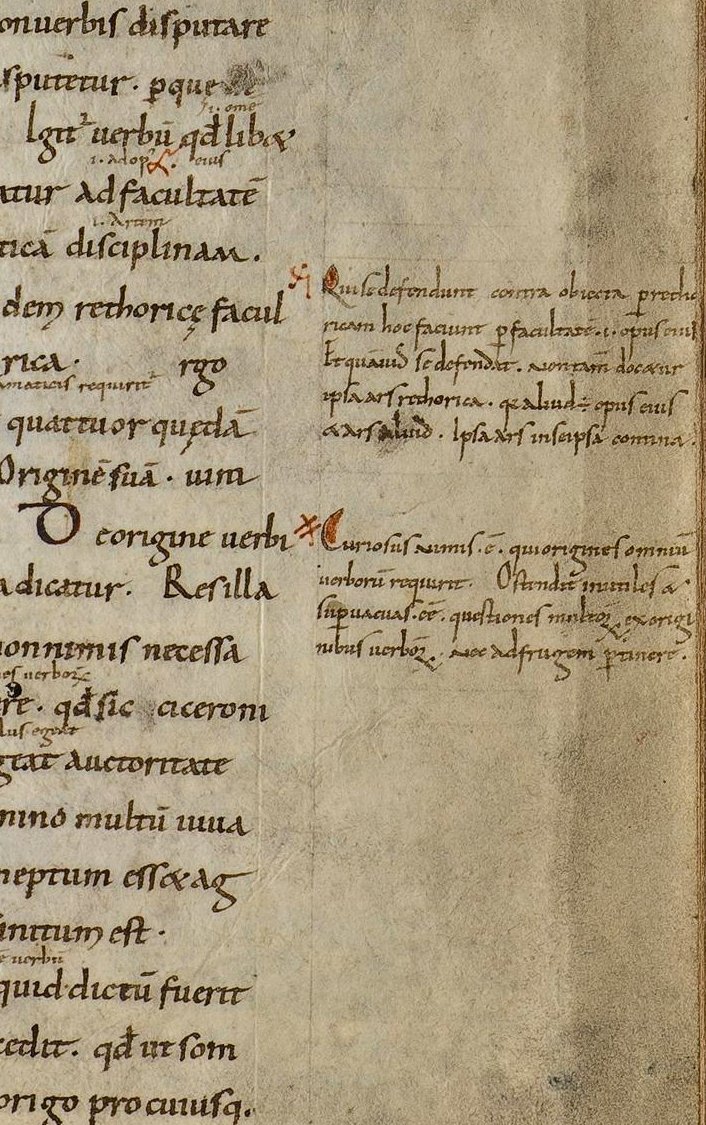 onuerbis disputare
sputetur. ꝑque
.i. om̄e
Igit᷑ uerbū qđ lib&
.i. ad op᷒ eius
atur ad facultatē
.i. artem
ticā disciplinam.
dem rethoricę facul
rica. rgo
amaticis requirit᷑
quattuor quędā
Originē suā. uim
De origine uerbi
a dicatur. Res illa
non nimis necessa
os uerboꝝ
re. qđ sic ciceroni
geat auctoritate
nino multū iuua
neptum ess& ag
initum est.
ē uerbū
quid dictū fuerit
cedit. qđ ut som
origo pro cuiusq.
Qui se defendunt contra obiecta ꝑ retho
ricam hoc faciunt ꝑ facultatē .i. opus eius
Et quāuis se defendat. non tam̄ doc&ur
ipsa ars rethorica. quia aliud ÷ opus eius
& ars aliud. Ipsa ars in se ipsa contina.
Curiosus nimis .ē. qui origines omniū
uerborū requirit. Ostendit inutiles &
suꝑuacuas .eē. questiones multoꝝ ex origi
nibus uerboꝝ. nec ad frugem ꝑtinere.